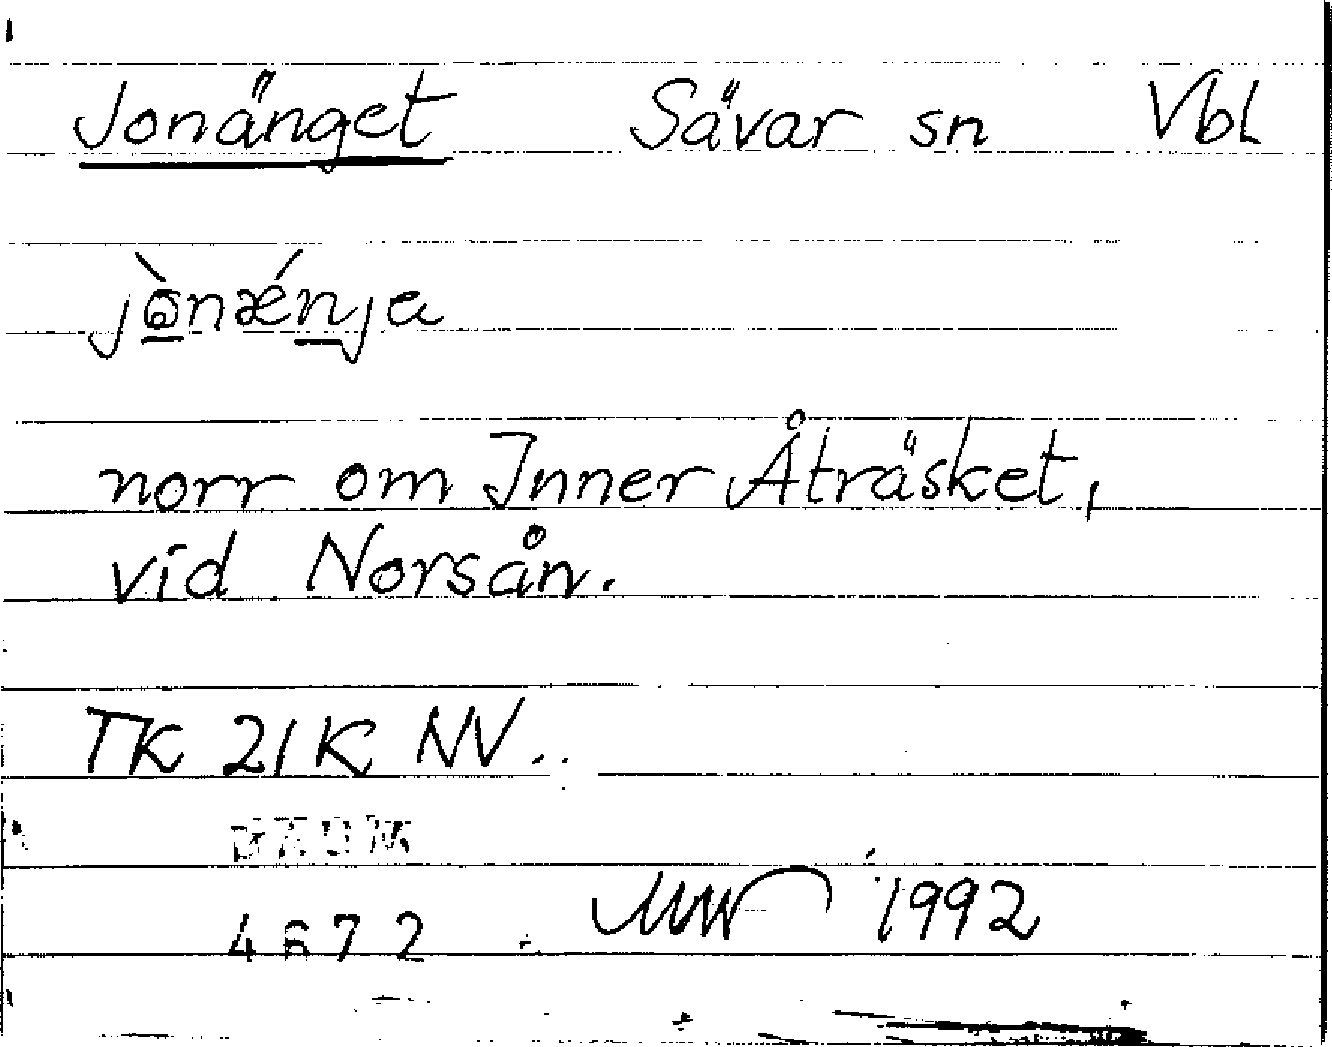 Jonänget Sävar sn Vbl
jɷ̠̀nǽn̠ja
norr om Inner Åträsket,
vid Norsån.
TK 21K NV..
DAUM
4672 1992